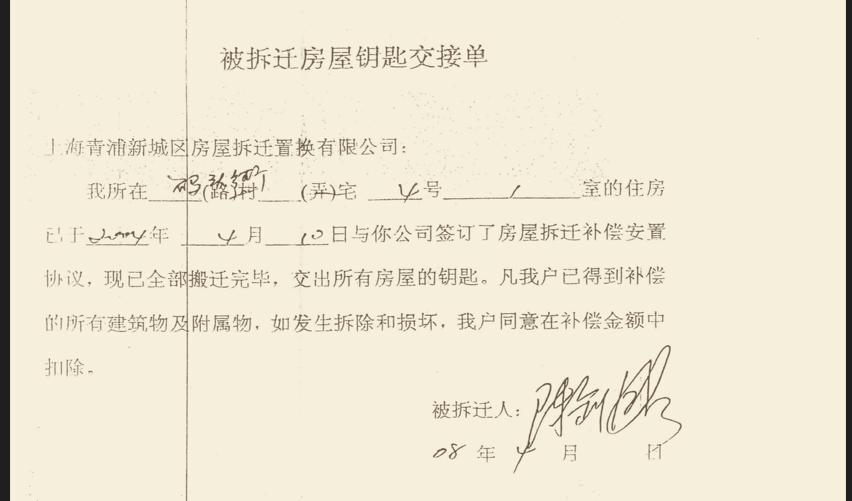 被拆迁房屋钥匙交接单
上海青浦新城区房屋拆迁置换有限公司：
我所在 码头街 (路)村 (弄)宅 4 号 1 室的住房
已于 2004 年 4 月 10 日与你公司签订了房屋拆迁补偿安置
协议，现已全部搬迁完毕，交出所有房屋的钥匙。凡我户已得到补偿
的所有建筑物及附属物，如发生拆除和损坏，我户同意在补偿金额中
扣除。
被拆迁人：陈剑
08 年 4 月 日